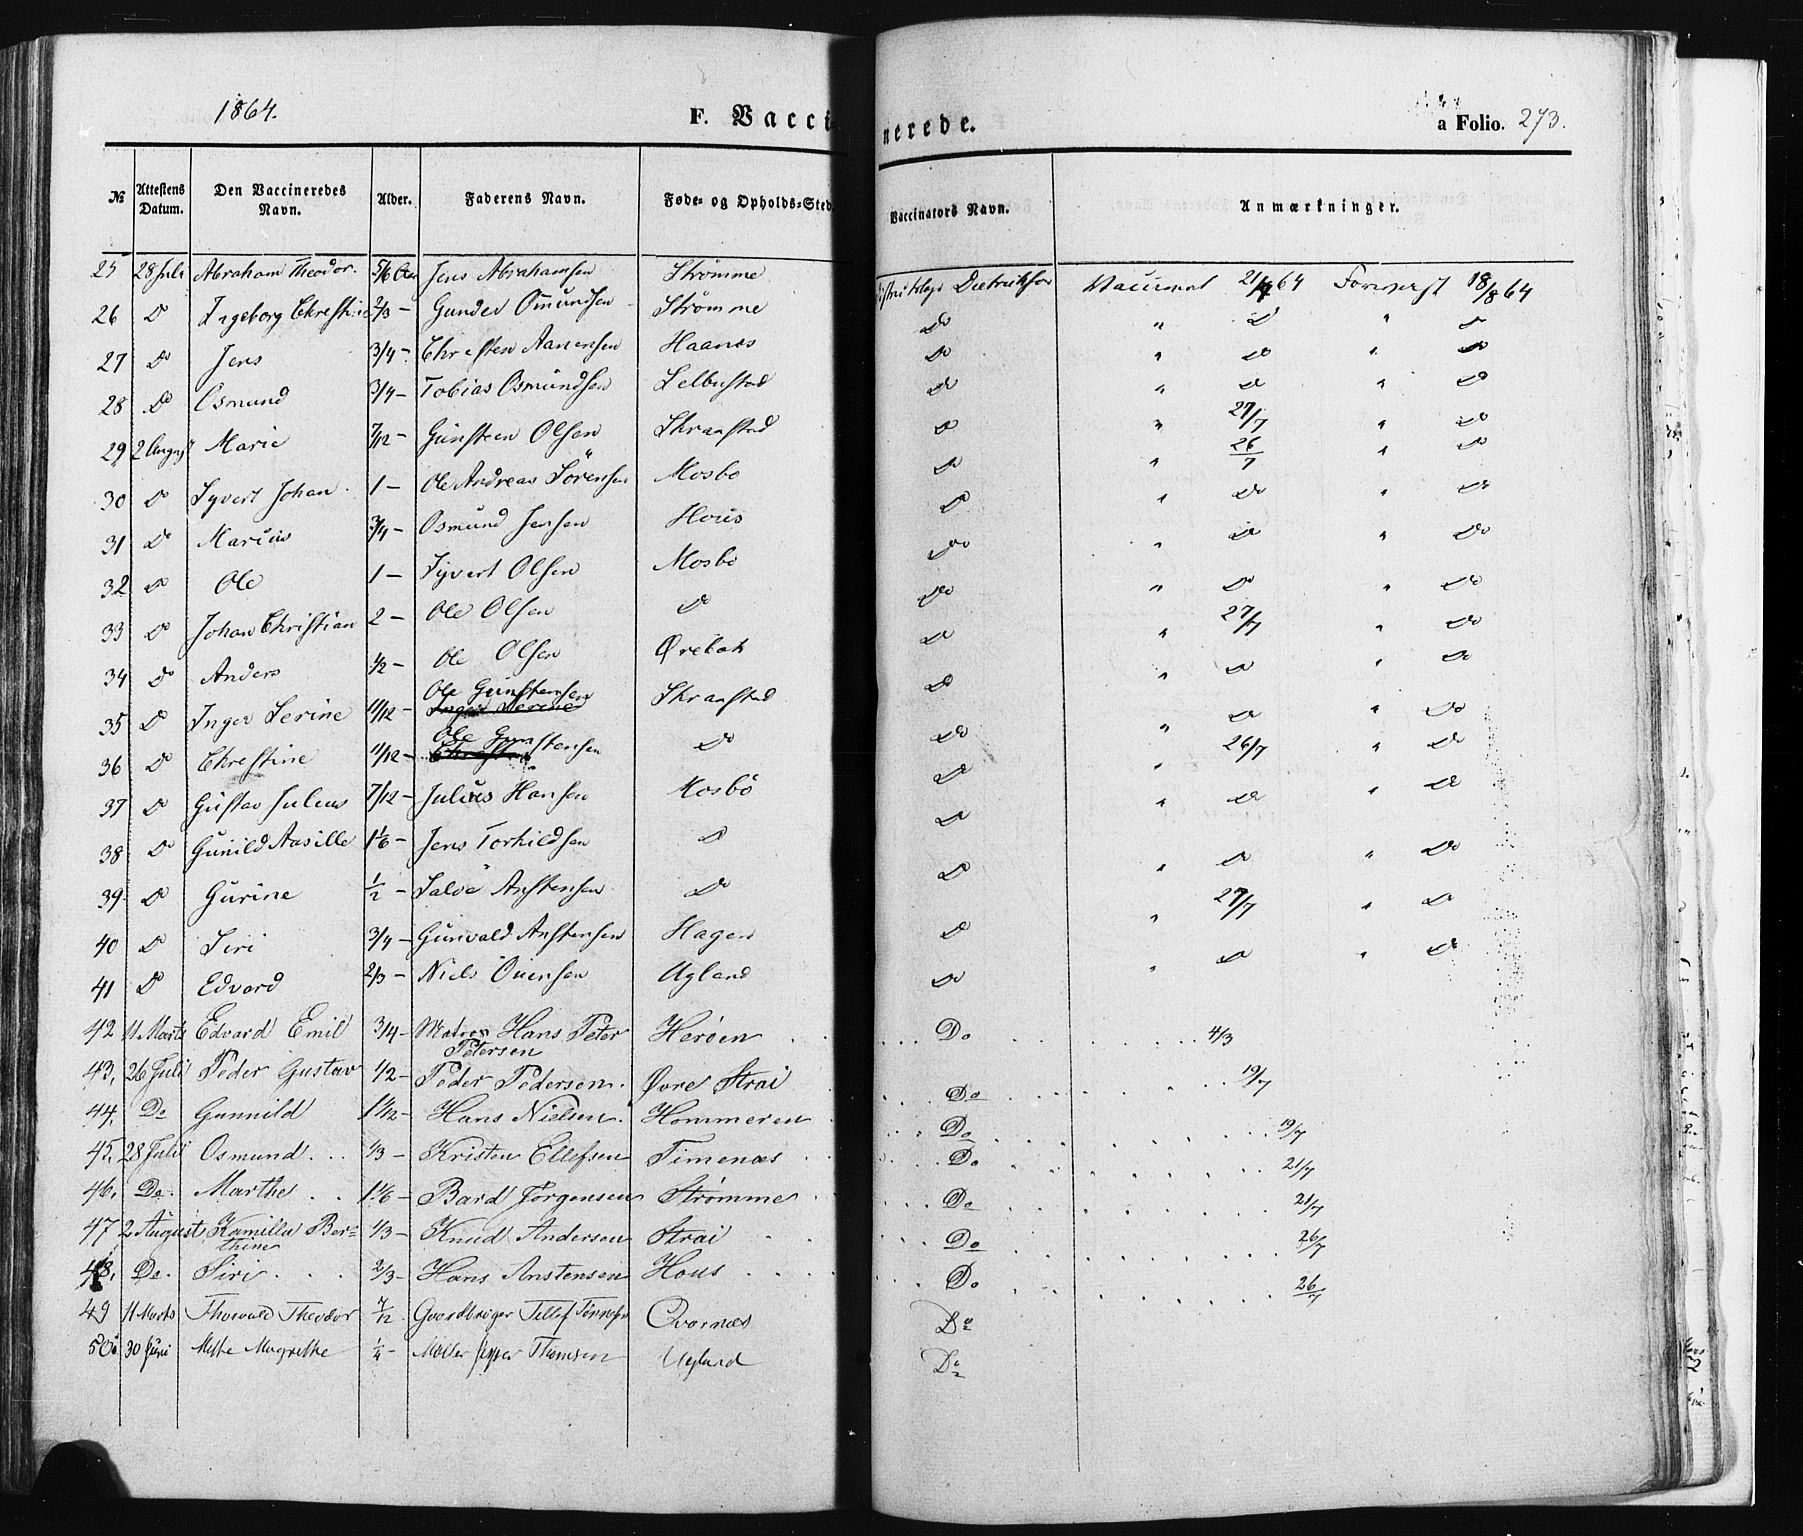 1864.
F. Vaccinerede.
a Folio. 273.
№ Attestens Datum. Den Vaccineredes Navn. Alder. Faderens Navn. Føde- og Opholds-Sted. Vaccinators Navn. Anmærkninger.
25 28 Juli Abraham Theodor. 5/6 Jens Abrahamsen Strømme Dietrikson Vaccineret 21/7 64 Foreviist 18/8 64
26 Do Ingeborg Chrestine 2/3 — Gunder Omundsen Strømme Do " Do " Do
27 Do Jens 3/4 — Chresten Aanensen Haanes Do " Do " Do
28 Do Osmund 3/4 — Tobias Osmundsen Do " Do " Do
29 2 August Marie 7/12 — Gunsteen Olsen Skraastad Do " 27/7 " Do
30 Do Syvert Johan 1 — Ole Andreas Sörensen Mosbö Do " 26/7 " Do
31 Do Marius 3/4 — Osmund Jensen Hous Do " Do " Do
32 Do Ole 1 — Syvert Olsen Mosbö Do " Do " Do
33 Do Johan Christian 2 — Ole Olsen Do Do " Do " Do
34 Do Anders 1/2 — Ole Olsen Do " 27/7 " Do
35 Do Inger Serine 11/12 — Ole Gunstensen Inger Serine Skraastad Do " Do " Do
36 Do Chrestine 11/12 — Ole Gunstensen Do Do " Do " Do
37 Do Gustav Julius 7/12 — Julius Hansen Mosbö Do " 26/7 " Do
38 Do Gunild Aasille 1 1/6 — Jens Torkildsen Do Do " Do " Do
39 Do Gurine 1/2 — Salve Anstensen Do Do " Do " Do
40 Do Siri 3/4 — Gunvald Anstensen Hagen Do " 27/7 " Do
41 Do Edvard 2/3 — Niels Ouensen Ugland Do " Do " Do
42 11 Marts Edvard Emil 3/4 — Matros Hans Peter Petersen Herøen Do 4/3
43, 26 Juli Peder Gustav 1/2 — Peder Pedersen. Øvre Strai Do 19/7
44, Do Gunnild 1 1/12 — Hans Nielsen. Hommeren Do 19/7
45, 28 Juli Osmund 1/3 — Kristen Ellefsen Timenæs Do 21/7
46, Do. Marthe 1 1/6 — Bard Jørgensen Strømme Do 21/7
47 2 August Kamilla Berthine 1/3 — Knud Andersen Strai Do 26/7
48, Do. Siri 2/3 — Hans Anstensen Hous Do 26/7
49 11 Marts Thorvald Theodor 7/12 Gaardbruger Tellef Tønnesen Qvarnæs Do
50. 30 Juni Mette Margrethe 1/4 — Møller Jesper Thomsen Ugland Do